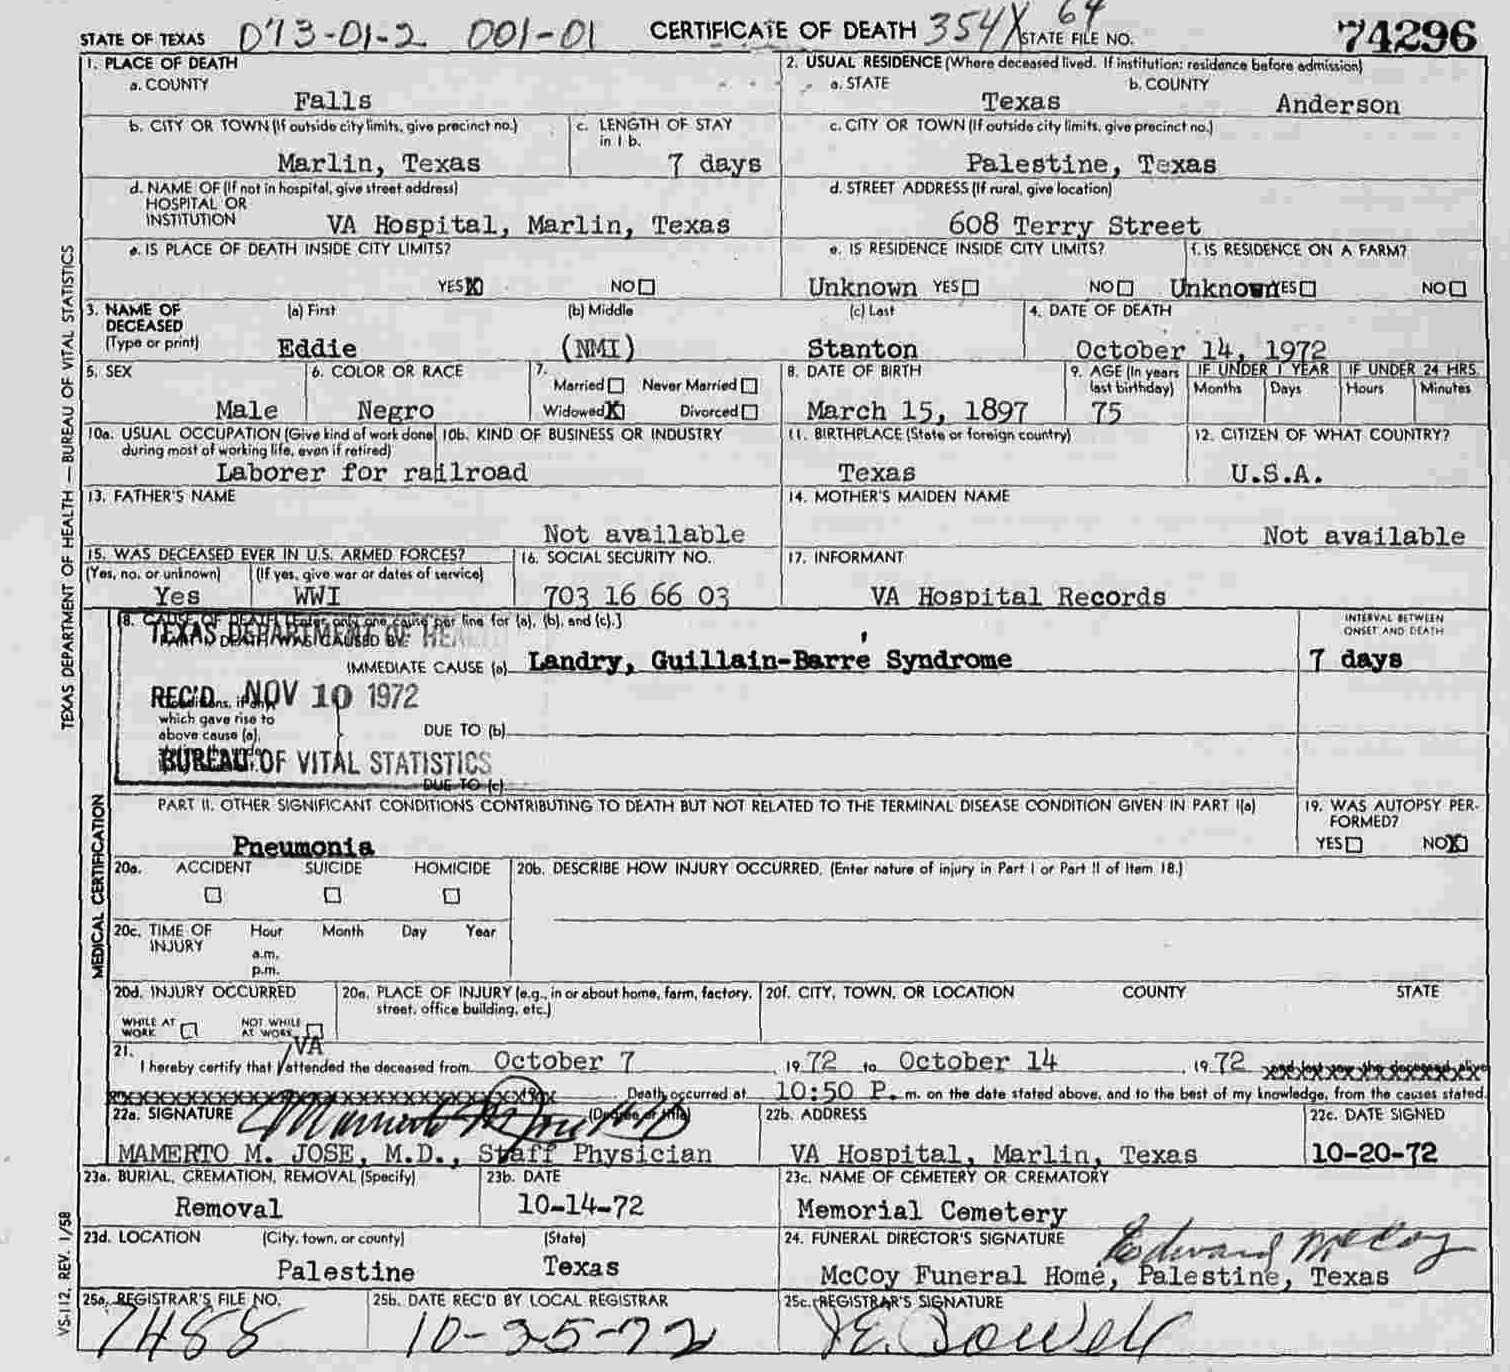 STATE OF TEXAS D73-01-2 001-01 CERTIFICATE OF DEATH 354X 64 STATE FILE NO. 74296
1. PLACE OF DEATH
a. COUNTY
Falls
2. USUAL RESIDENCE (Where deceased lived. If institution: residence before admission)
a. STATE b. COUNTY
Texas Anderson
b. CITY OR TOWN (If outside city limits, give precinct no.)
Marlin, Texas
c. LENGTH OF STAY
in 1 b.
7 days
c. CITY OR TOWN (If outside city limits, give precinct no.)
Palestine, Texas
d. NAME OF (If not in hospital, give street address)
HOSPITAL OR
INSTITUTION VA Hospital, Marlin, Texas
d. STREET ADDRESS (If rural, give location)
608 Terry Street
e. IS PLACE OF DEATH INSIDE CITY LIMITS?
YES X NO
e. IS RESIDENCE INSIDE CITY LIMITS?
Unknown YES NO
f. IS RESIDENCE ON A FARM?
Unknown YES NO
3. NAME OF
DECEASED
(Type or print)
(a) First (b) Middle (c) Last
Eddie (NMI) Stanton
4. DATE OF DEATH
October 14, 1972
5. SEX
Male
6. COLOR OR RACE
Negro
7.
Married Never Married
Widowed X Divorced
8. DATE OF BIRTH
March 15, 1897
9. AGE (In years
last birthday)
75
IF UNDER 1 YEAR
Months Days
IF UNDER 24 HRS.
Hours Minutes
10a. USUAL OCCUPATION (Give kind of work done
during most of working life, even if retired)
10b. KIND OF BUSINESS OR INDUSTRY
Laborer for railroad
11. BIRTHPLACE (State or foreign country)
Texas
12. CITIZEN OF WHAT COUNTRY?
U.S.A.
13. FATHER'S NAME
Not available
14. MOTHER'S MAIDEN NAME
Not available
15. WAS DECEASED EVER IN U.S. ARMED FORCES?
(Yes, no. or unknown) (If yes, give war or dates of service)
Yes WWI
16. SOCIAL SECURITY NO.
703 16 66 03
17. INFORMANT
VA Hospital Records
18. CAUSE OF DEATH [Enter only one cause per line for (a), (b), and (c).]
TEXAS DEPARTMENT OF HEALTH
PART I. DEATH WAS CAUSED BY:
IMMEDIATE CAUSE (a) Landry, Guillain-Barre' Syndrome
INTERVAL BETWEEN
ONSET AND DEATH
7 days
REC'D NOV 10 1972
Conditions, if any,
which gave rise to
above cause (a),
DUE TO (b)
BUREAU OF VITAL STATISTICS
DUE TO (c)
PART II. OTHER SIGNIFICANT CONDITIONS CONTRIBUTING TO DEATH BUT NOT RELATED TO THE TERMINAL DISEASE CONDITION GIVEN IN PART I(a)
Pneumonia
19. WAS AUTOPSY PER-
FORMED?
YES NO X
20a. ACCIDENT SUICIDE HOMICIDE
20b. DESCRIBE HOW INJURY OCCURRED. (Enter nature of injury in Part I or Part II of Item 18.)
20c. TIME OF
INJURY
Hour Month Day Year
a.m.
p.m.
20d. INJURY OCCURRED
WHILE AT
WORK
NOT WHILE
AT WORK
20e. PLACE OF INJURY (e.g., in or about home, farm, factory,
street, office building, etc.)
20f. CITY, TOWN, OR LOCATION COUNTY STATE
21. VA
I hereby certify that / attended the deceased from October 7, 1972 to October 14, 1972
Death occurred at 10:50 P. m. on the date stated above, and to the best of my knowledge, from the causes stated.
22a. SIGNATURE (Degree or title)
MAMERTO M. JOSE, M.D., Staff Physician
22b. ADDRESS
VA Hospital, Marlin, Texas
22c. DATE SIGNED
10-20-72
23a. BURIAL, CREMATION, REMOVAL (Specify)
Removal
23b. DATE
10-14-72
23c. NAME OF CEMETERY OR CREMATORY
Memorial Cemetery
23d. LOCATION (City, town, or county) (State)
Palestine Texas
24. FUNERAL DIRECTOR'S SIGNATURE Edward McCoy
McCoy Funeral Home, Palestine, Texas
25a. REGISTRAR'S FILE NO.
7488
25b. DATE REC'D BY LOCAL REGISTRAR
10-25-72
25c. REGISTRAR'S SIGNATURE
TEXAS DEPARTMENT OF HEALTH — BUREAU OF VITAL STATISTICS
MEDICAL CERTIFICATION
VS-112, REV. 1/58